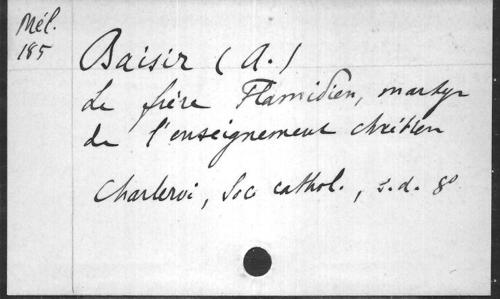 Mél.
185
Baisir (A.)
Le frère Flamidien, martyr
de l'enseignement chrétien
Charleroi, Soc cathol., s.d. 8°